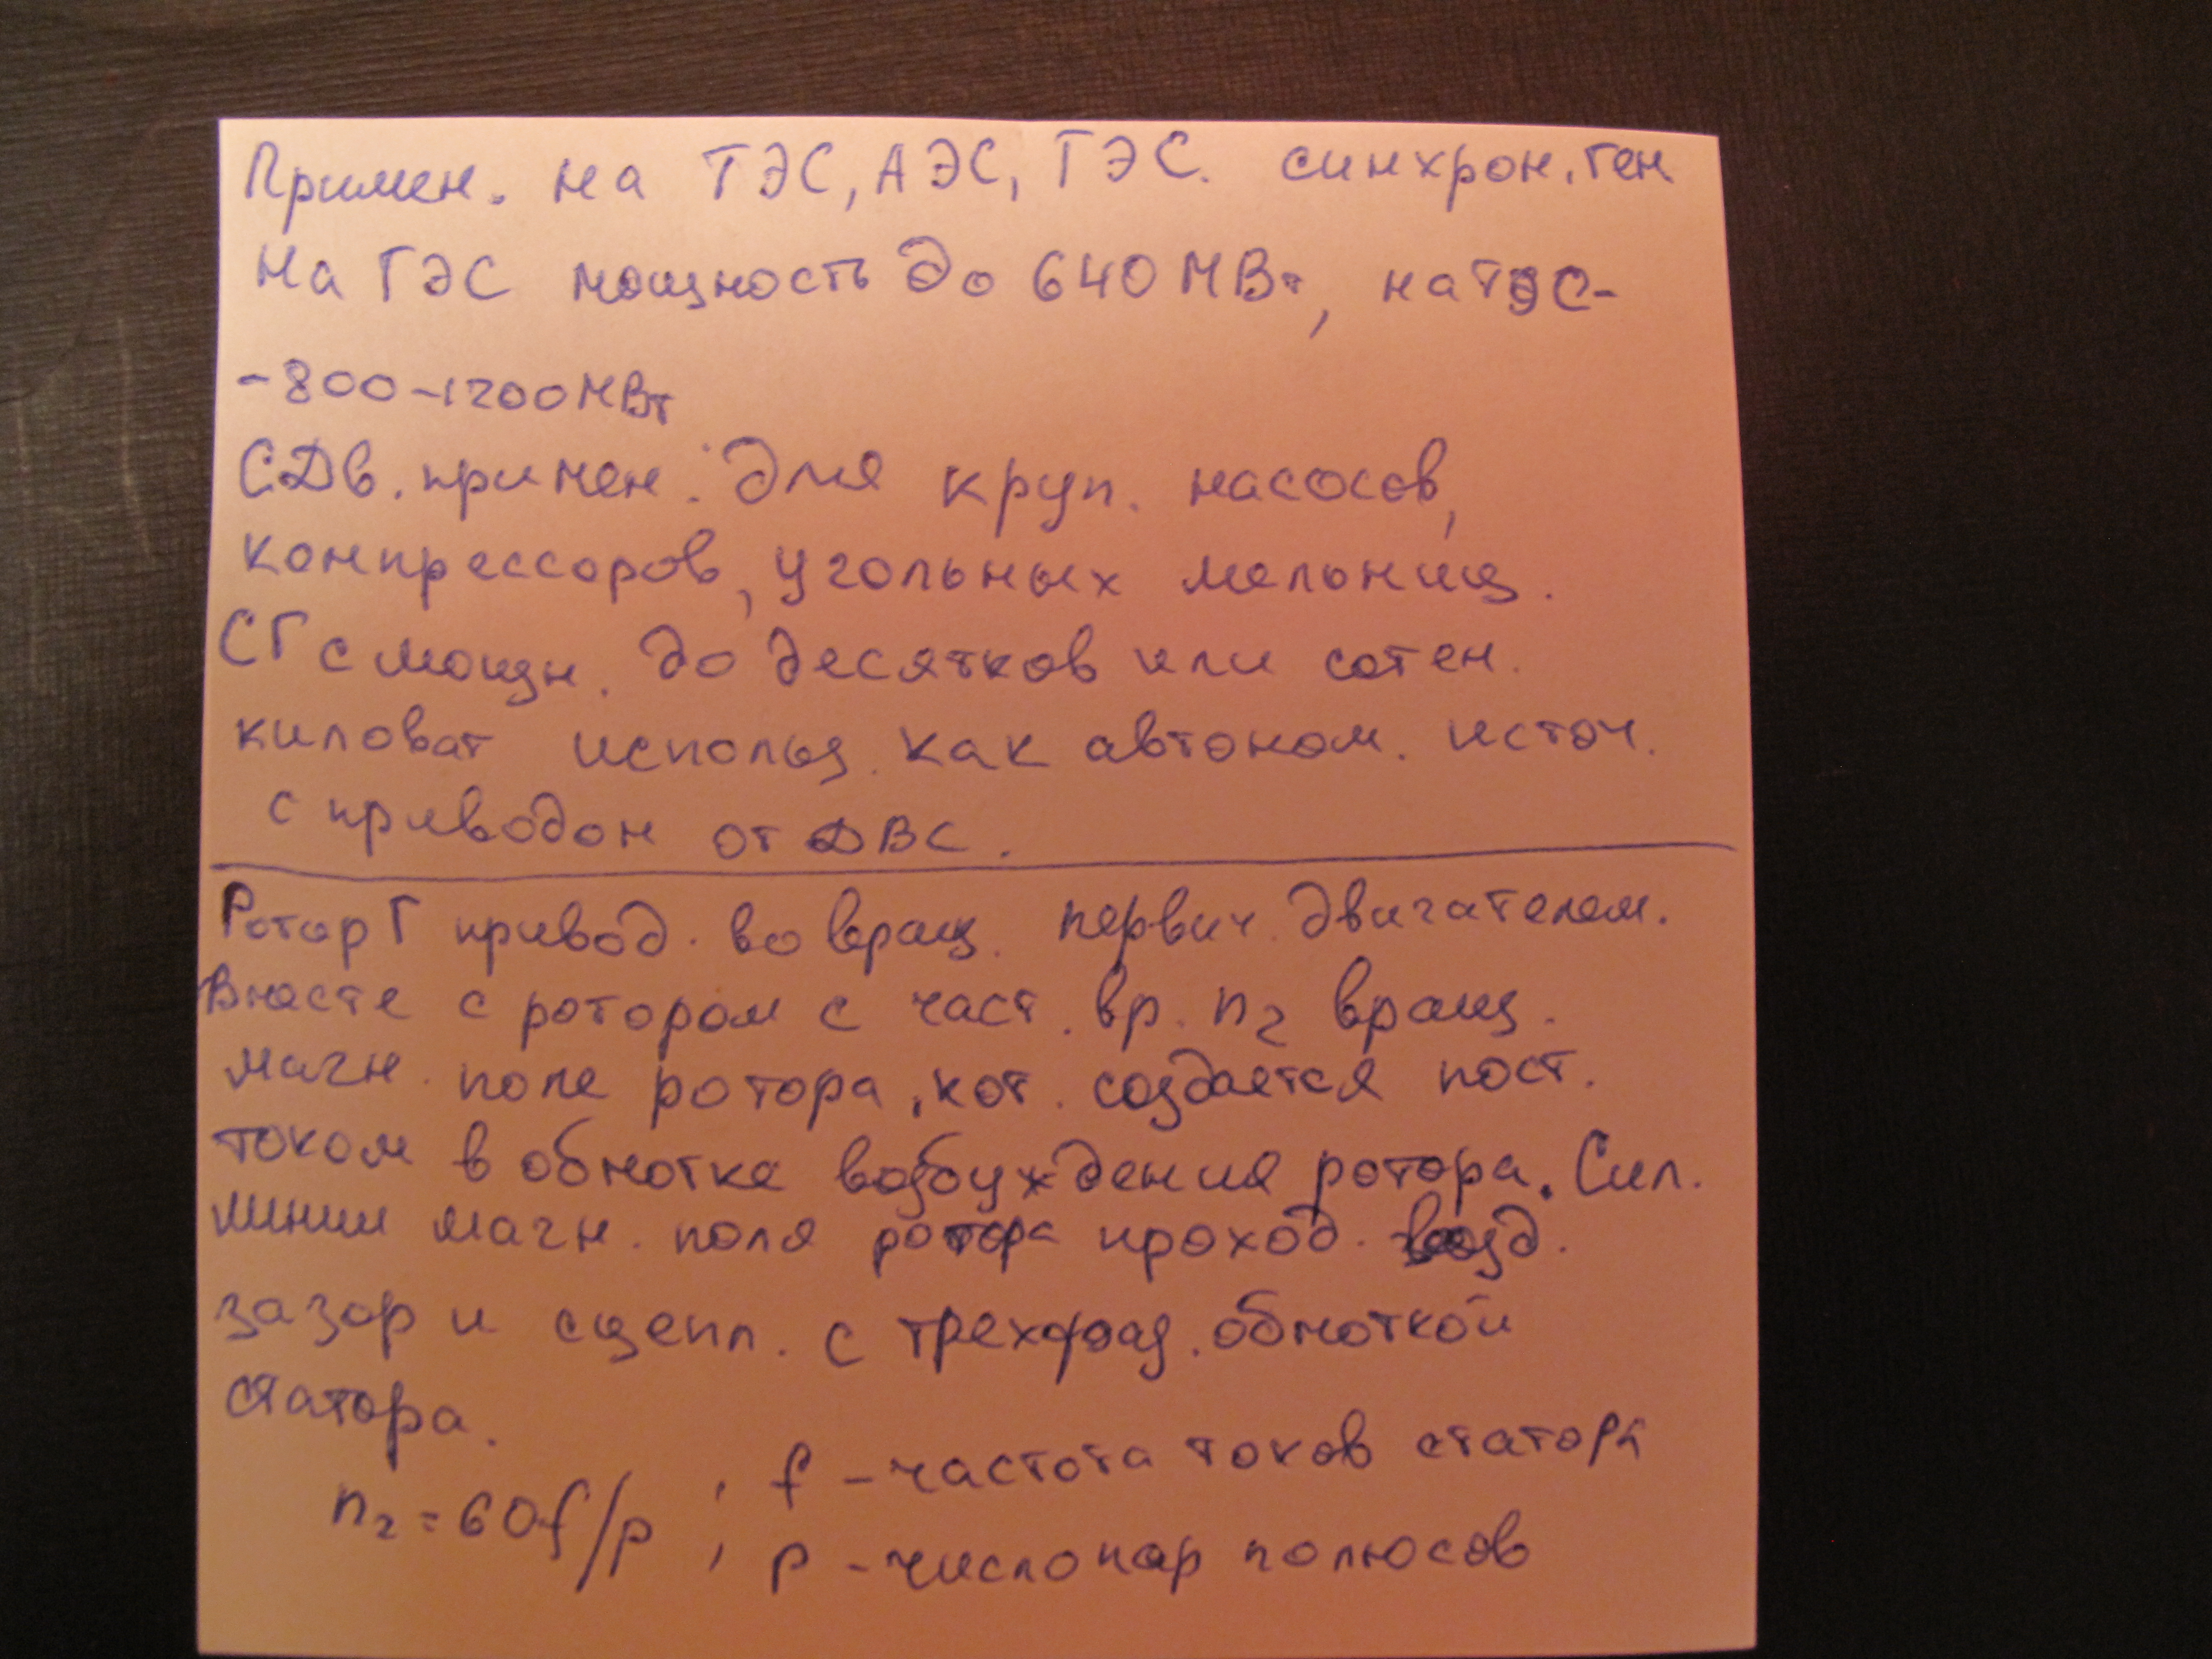 Примен. на ТЭС, АЭС, ГЭС. синхрон. ген
На ГЭС мощность до 640 МВт, на ТЭС-
-800-1200МВт
СДв. примен. для круп. насосов,
компрессоров, угольных мельниц.
СГ с мощн. до десятков или сотен.
киловат использ. как автоном. источ.
с приводом от ДВС.
Ротор Г привод. во вращ. первич. двигателем.
Вместе с ротором с част. вр. n₂ вращ.
магн. поле ротора, кот. создается пост.
током в обмотке возбуждения ротора. Сил.
линии магн. поля ротора проход. возд.
зазор и сцепл. с трехфаз. обмоткой
статора.
n₂ = 60f/p ; f - частота токов статора
; p - число пар полюсов